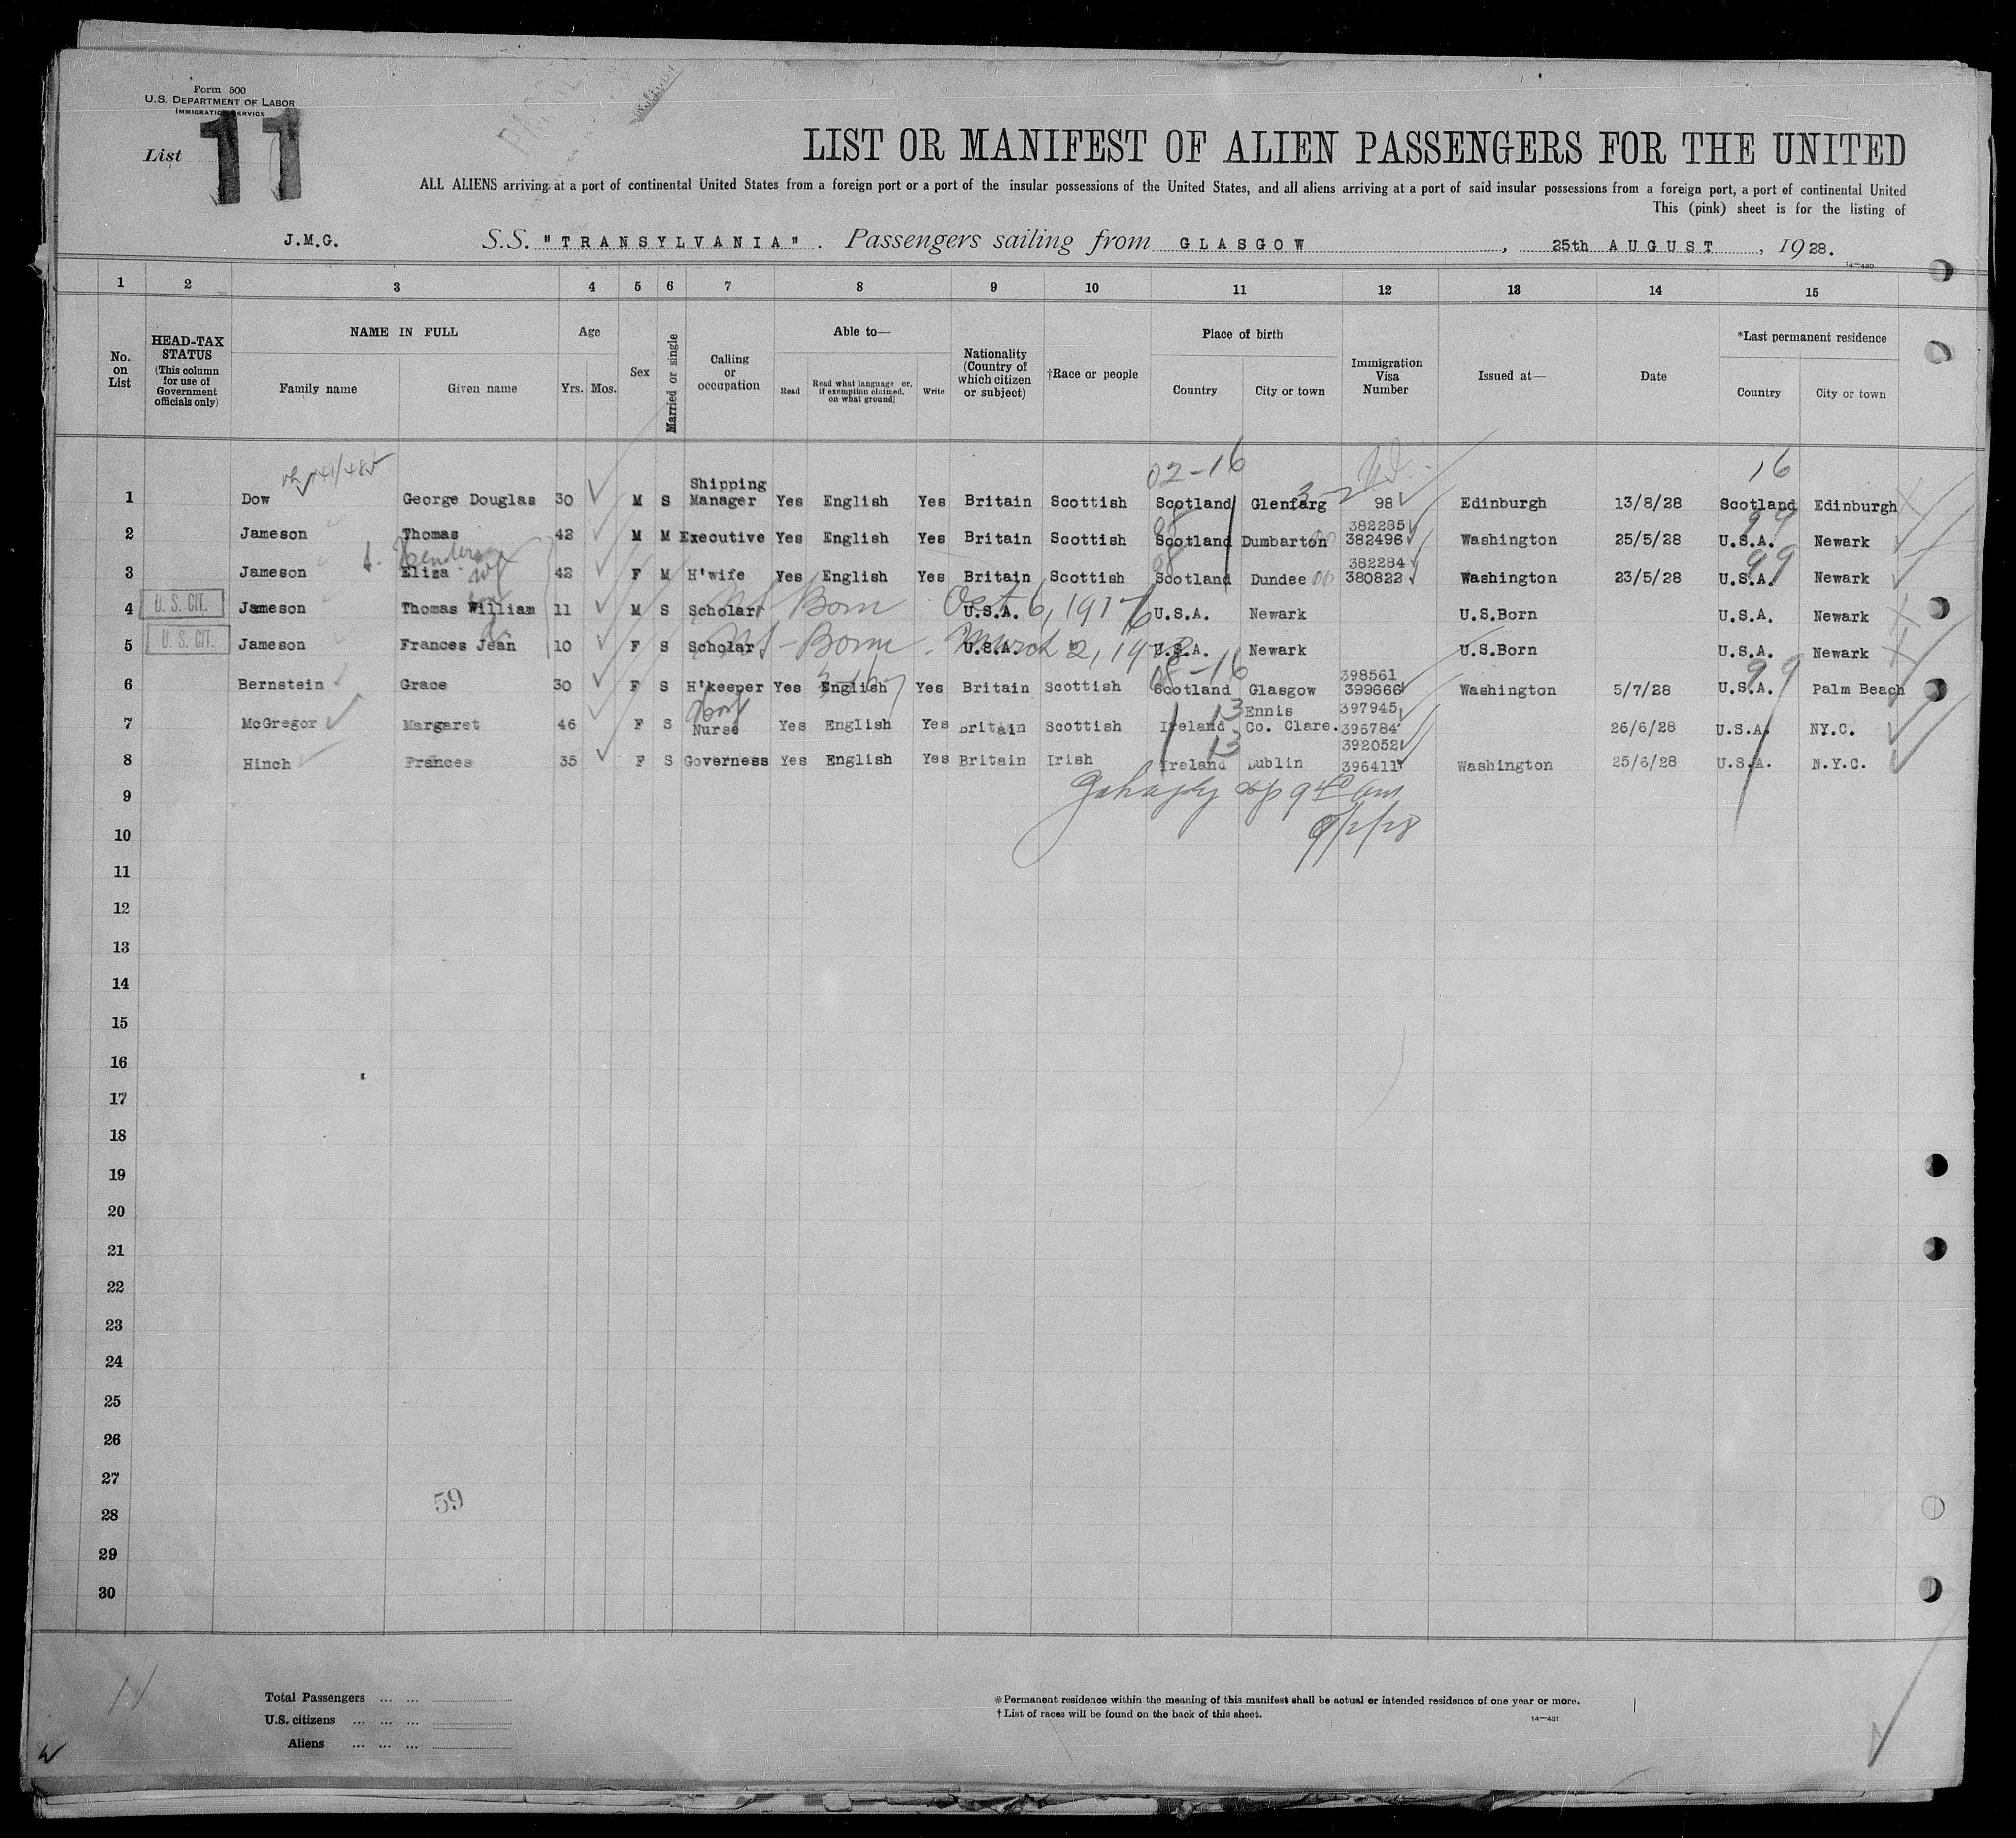 Form 500
U.S. DEPARTMENT OF LABOR
IMMIGRATION SERVICE
List 11
LIST OR MANIFEST OF ALIEN PASSENGERS FOR THE UNITED
ALL ALIENS arriving at a port of continental United States from a foreign port or a port of the insular possessions of the United States, and all aliens arriving at a port of said insular possessions from a foreign port, a port of continental United
This (pink) sheet is for the listing of
J.M.G. S.S. "TRANSYLVANIA". Passengers sailing from GLASGOW, 25th AUGUST, 1928.
14—430
1 2 3 4 5 6 7 8 9 10 11 12 13 14 15
No. on List
HEAD-TAX STATUS (This column for use of Government officials only)
NAME IN FULL
Family name Given name
Age
Yrs. Mos.
Sex
Married or single
Calling or occupation
Able to—
Read
Read what language or, if exemption claimed, on what ground]
Write
Nationality (Country of which citizen or subject)
†Race or people
Place of birth
Country City or town
Immigration Visa Number
Issued at—
Date
*Last permanent residence
Country City or town
02-16 16
1 Dow George Douglas 30 M S Shipping Manager Yes English Yes Britain Scottish Scotland Glenfarg 98 Edinburgh 13/8/28 Scotland Edinburgh
2 Jameson Thomas 42 M M Executive Yes English Yes Britain Scottish Scotland Dumbarton 382285 382496 Washington 25/5/28 U.S.A. Newark
99
3 Jameson Eliza wf 42 F M H'wife Yes English Yes Britain Scottish Scotland Dundee 382284 380822 Washington 23/5/28 U.S.A. Newark
99
4 U. S. CIT. Jameson Thomas William 11 M S Scholar U.S.A. U.S.A. Newark U.S.Born U.S.A. Newark
Born Oct 6, 1917
5 U. S. CIT. Jameson Frances Jean 10 F S Scholar U.S.A. U.S.A. Newark U.S.Born U.S.A. Newark
Born March 2, 19
6 Bernstein Grace 30 F S H'keeper Yes English Yes Britain Scottish Scotland Glasgow 398561 399666 Washington 5/7/28 U.S.A. Palm Beach
99
7 McGregor Margaret 46 F S Nurse Yes English Yes Britain Scottish Ireland Ennis Co. Clare. 397945 396784 26/6/28 U.S.A. NY.C.
13
8 Hinch Frances 35 F S Governess Yes English Yes Britain Irish Ireland Dublin 392052 396411 Washington 25/6/28 U.S.A. N.Y.C.
13
9
10
11
12
13
14
15
16
17
18
19
20
21
22
23
24
25
26
27
59
28
29
30
11
Total Passengers ... ...
U.S. citizens ... ... ...
Aliens ... ... ...
*Permanent residence within the meaning of this manifest shall be actual or intended residence of one year or more.
†List of races will be found on the back of this sheet.
14—431